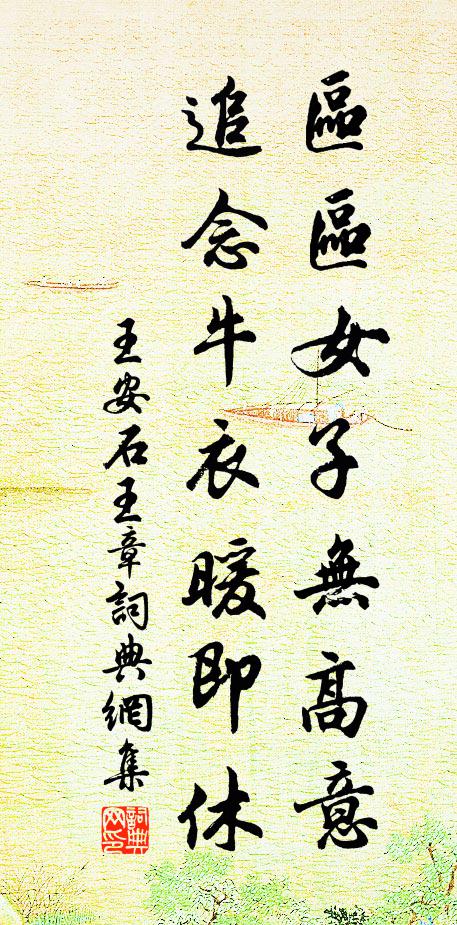 區區女子無高意
追念牛衣暖即休
王安石王章詞典網集
詞典
网印